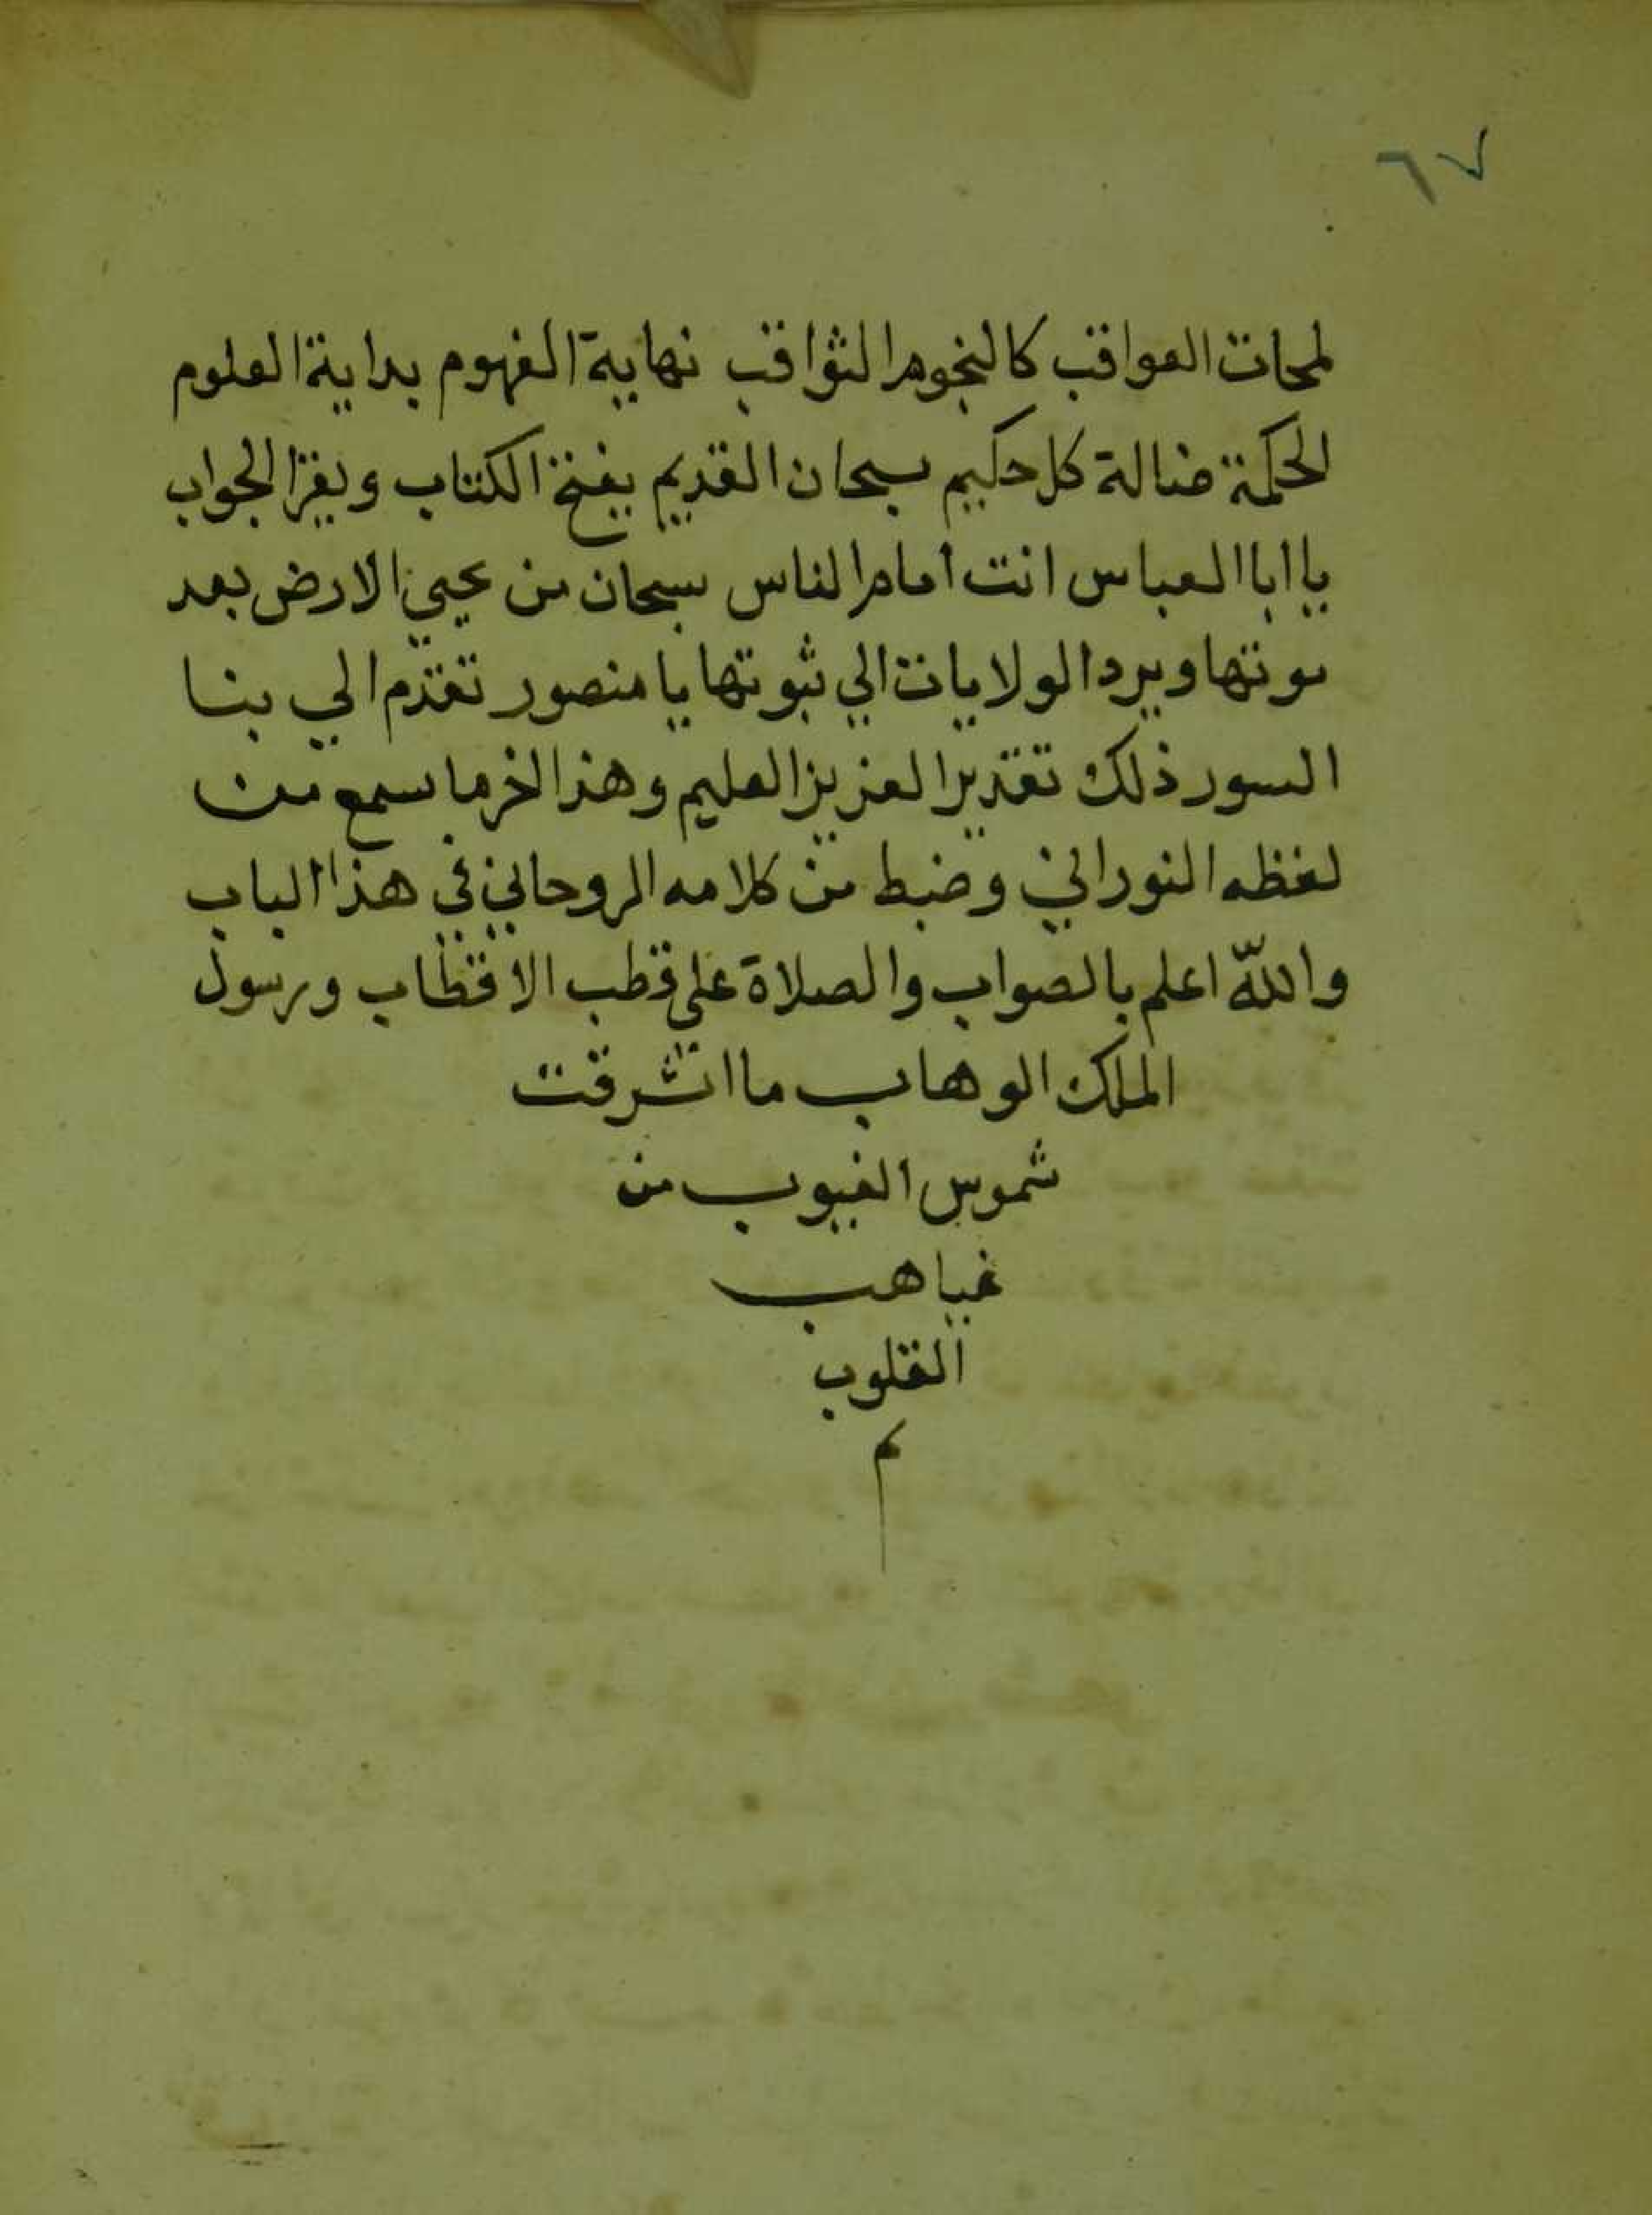 ٦٧
لمحات العواقب كالنجوم الثواقب نهاية الفهوم بداية العلوم
الحكمة ضالة كل حكيم سبحان القديم يفتح الكتاب ويقرا الجواب
يا ابا العباس انت امام الناس سبحان من يحيي الارض بعد
موتها ويرد الولايات الي ثبوتها يا منصور تقدم الي بنا
السور ذلك تقدير العزيز العليم وهذا اخر ما سمع من
لفظه النوراني وضبط من كلامه الروحاني في هذا الباب
والله اعلم بالصواب والصلاة علي قطب الاقطاب ورسول
الملك الوهاب ما اشرقت
شموس الغيوب من
غياهب
القلوب
م